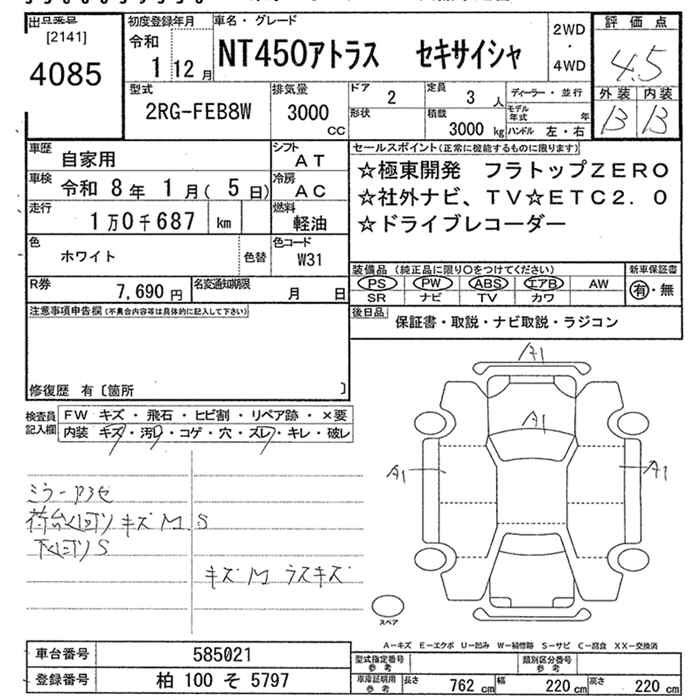 出品番号
[2141]
4085
初度登録年月
令和
1 12月
車名・グレード
NT450アトラス セキサイシャ
2WD
・
4WD
評価点
4.5
外装 内装
B B
型式
2RG-FEB8W
排気量
3000
CC
ドア
2
定員
3人
形状
積載
3000 kg
ディーラー・並行
モデル年式 年
ハンドル 左・右
車歴
自家用
シフト
AT
車検
令和 8年 1月( 5日)
冷房
AC
走行
1万0千687 km
燃料
軽油
色
ホワイト
色替
色コード
W31
R券
7,690円
名変通知期限
月 日
セールスポイント(正常に機能するものに限ります)
☆極東開発 フラトップZERO
☆社外ナビ、TV☆ETC2.0
☆ドライブレコーダー
装備品(純正品に限り○をつけてください)
新車保証書
PS PW ABS エアB AW
SR ナビ TV カワ
有・無
後日品
保証書・取説・ナビ取説・ラジコン
注意事項申告欄(不具合内容等は具体的に記入して下さい)
修復歴 有〔箇所 〕
検査員
記入欄
FW キズ・飛石・ヒビ割・リペア跡・×要
内装 キズ・汚れ・コゲ・穴・スレ・キレ・破レ
荷台回りキズM.S
下回りS
キズM ラスキズ
A1
A1
A1
A1
スペア
A-キズ E-エクボ U-凹み W-補修跡 S-サビ C-腐食 XX-交換済
車台番号
585021
登録番号
柏 100 そ 5797
型式指定番号
参考
類別区分番号
参考
車庫証明用
参考
長さ 762 cm 幅 220 cm 高さ 220 cm